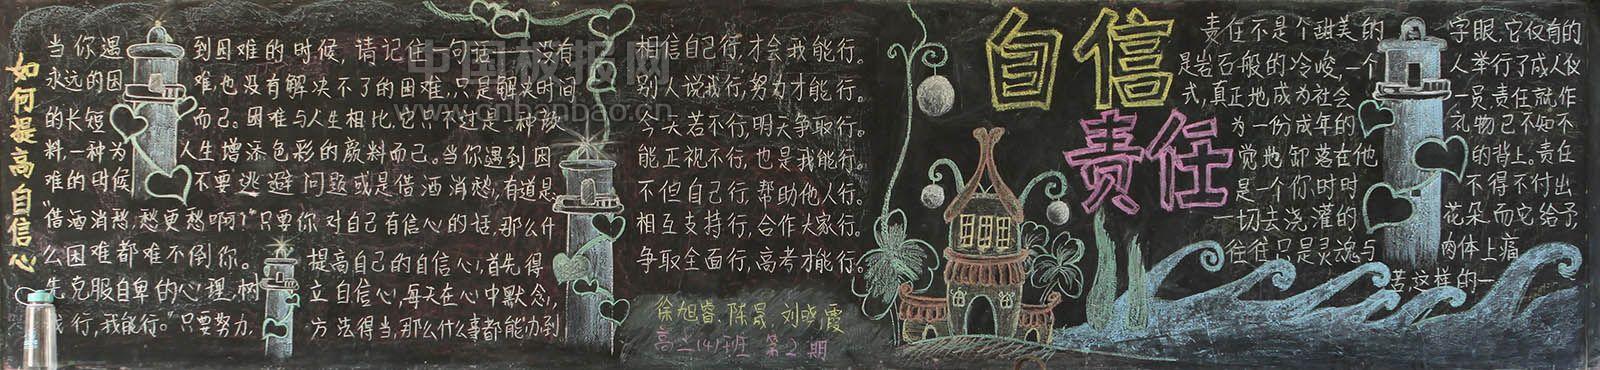 如何提高自信心
当你遇到困难的时候,请记住一句话——没有
永远的困难,也没有解决不了的困难,只是解决时间
的长短而已。困难与人生相比,它只不过是一种颜
料,一种为人生增添色彩的颜料而已。当你遇到困
难的时候不要逃避问题或是借酒消愁,有道是
“借酒消愁,愁更愁啊!”只要你对自己有信心的话,那么什
么困难都难不倒你。提高自己的自信心,首先得
先克服自卑的心理,树立自信心,每天在心中默念,
我行,我能行。”只要努力,方法得当,那么什么事都能办到
相信自己行,才会我能行。
别人说我行,努力才能行。
今天若不行,明天争取行。
能正视不行,也是我能行。
不但自己行,帮助他人行。
相互支持行,合作大家行。
争取全面行,高考才能行。
徐旭睿、陈晟、刘晓霞
高二(4)班 第2期
自信
责任
责任不是个甜美的字眼,它仅有的
是岩石般的冷峻,一个人举行了成人仪
式,真正地成为社会一员,责任就作
为一份成年的礼物已不知不
觉地卸落在他的背上。责任
是一个你时时不得不付出
一切去浇灌的花朵,而它给予,
往往只是灵魂与肉体上痛
苦,这样的一
中国板报网
www.cnhanbao.cn